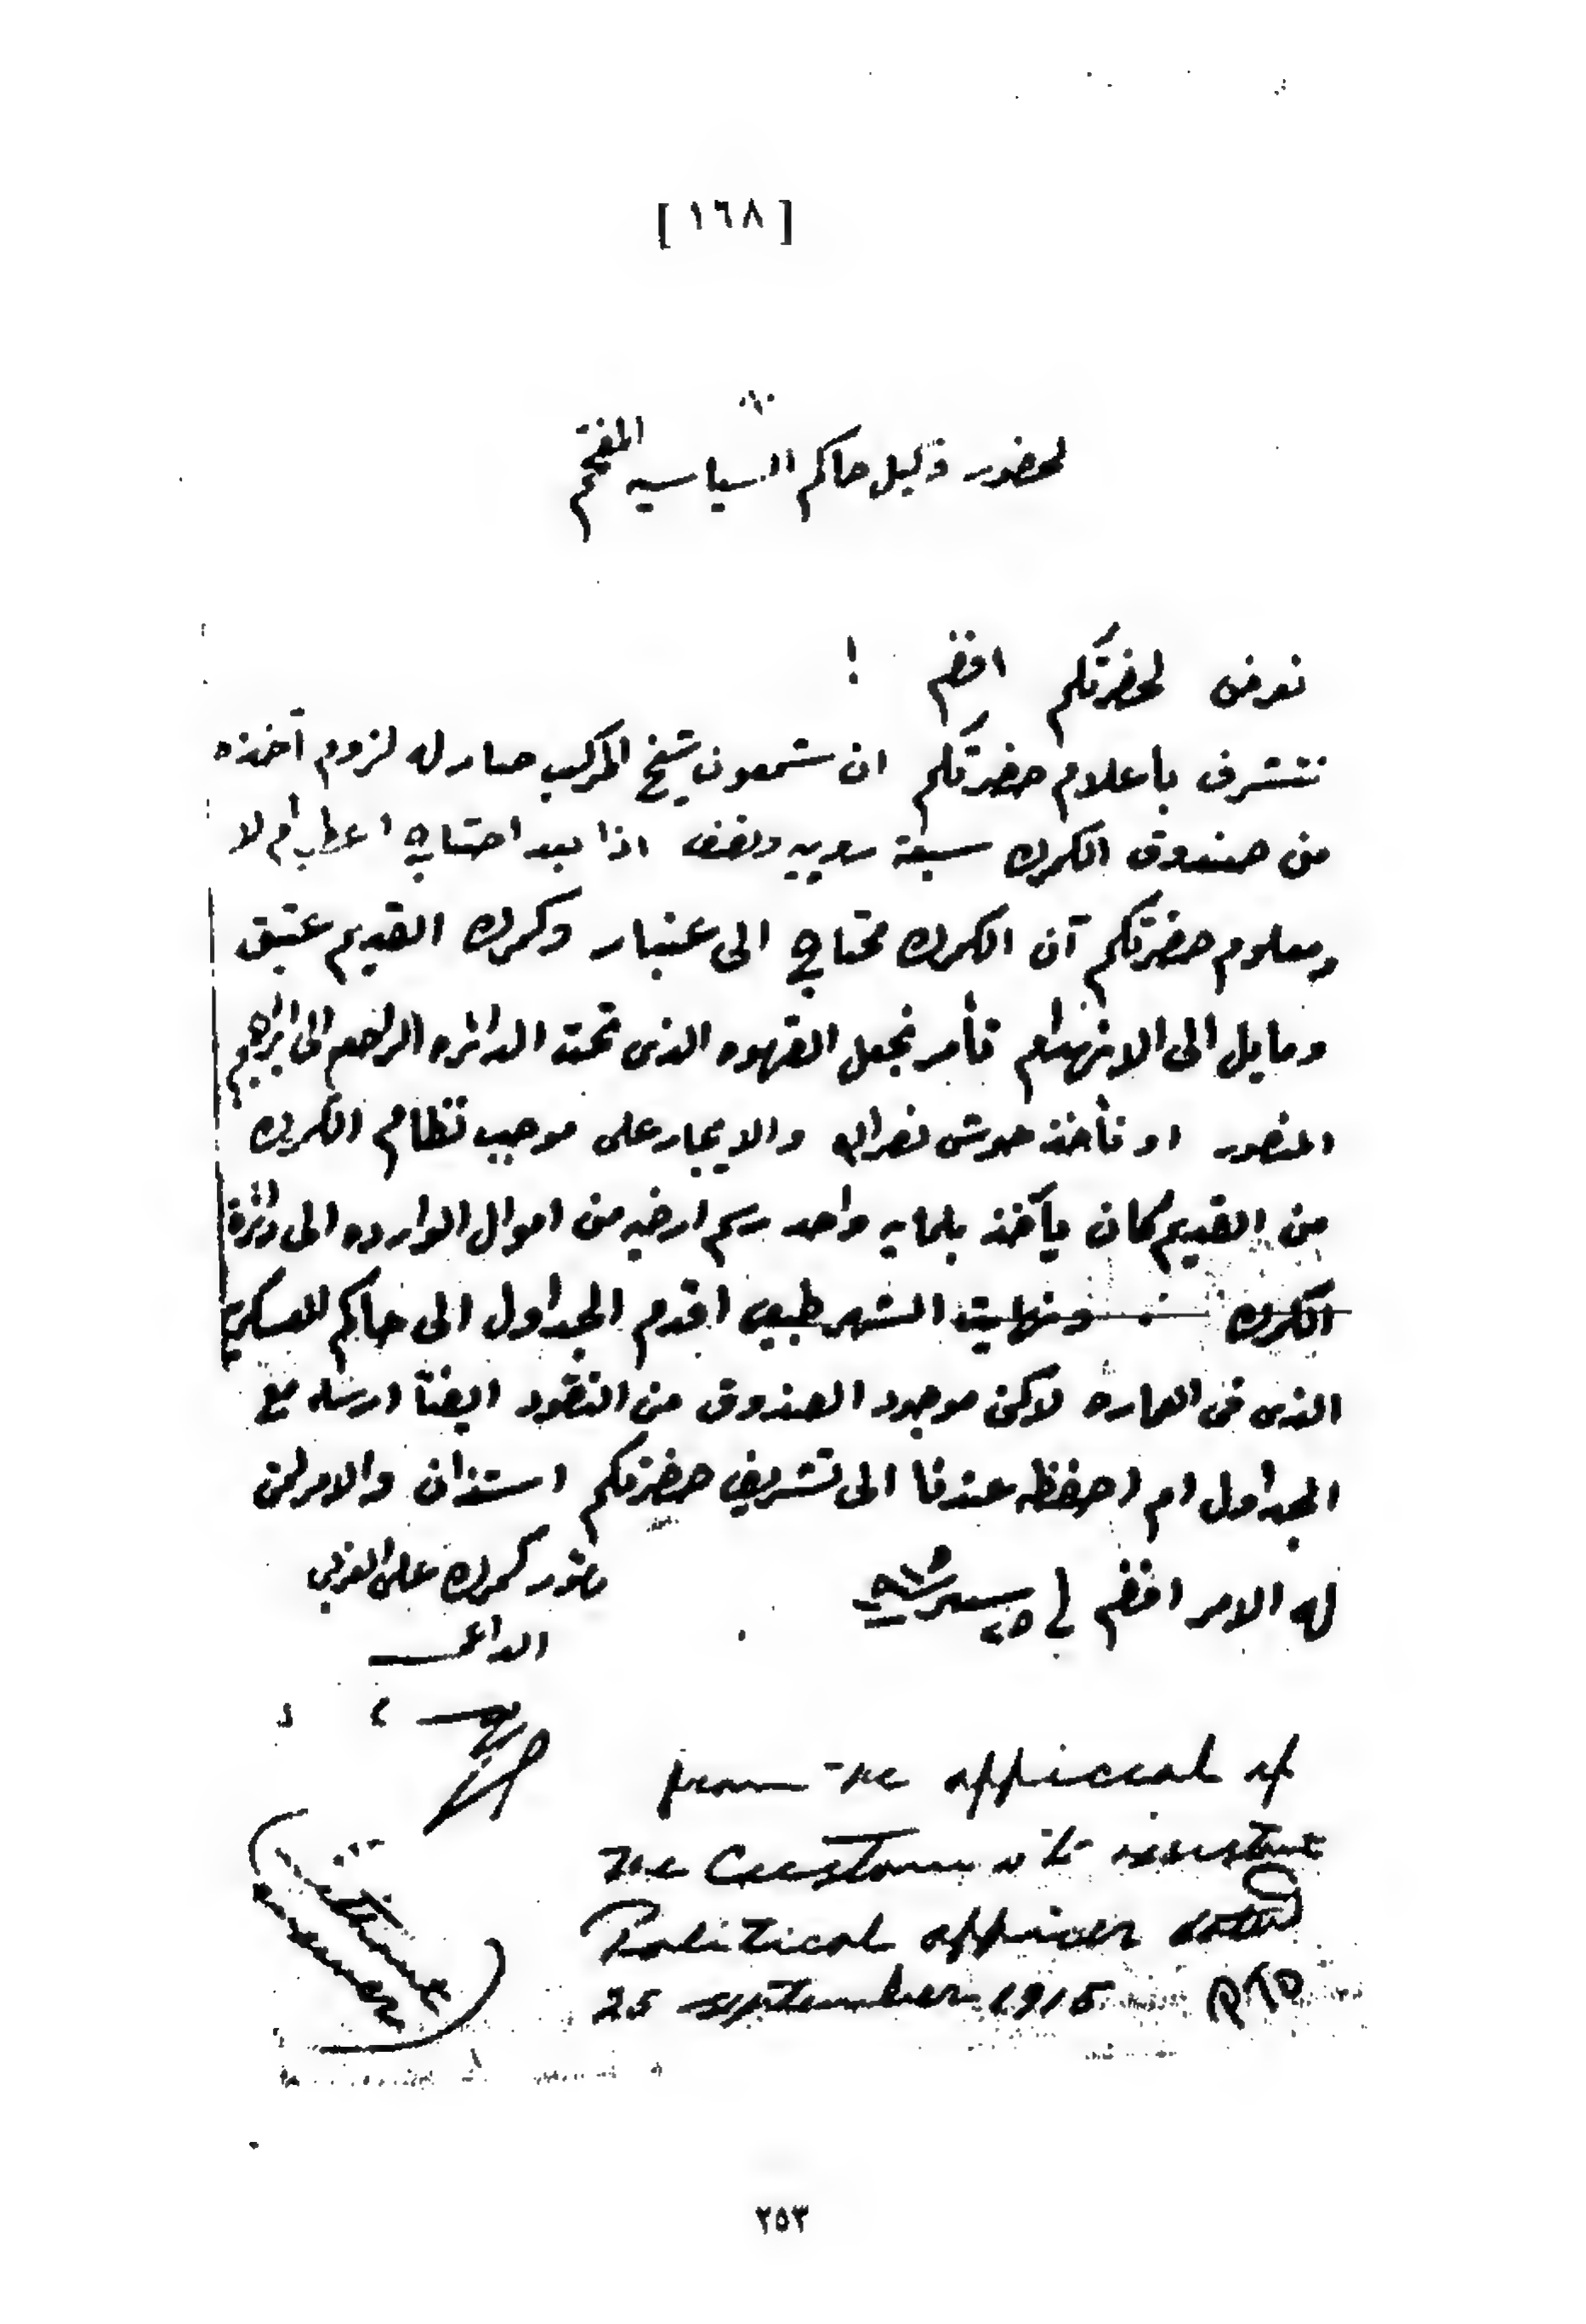 [ ١٦٨ ]
لحضور وكيل حاكم السياسيه المفخم
نعرض لحضرتكم افندم !
نتشرف بأعلام حضرتكم ان شمعون شيخ المركب صار له لزوم آخذه
من صندوق الكمرك سبعة روبيه ونصف اذا بعد احتاج اعطيه ام لا
ومعلوم حضرتكم آن الكمرك محتاج الى عنبار وكمرك القديم عتيق
ومايل الى الانهدام تأمر نجعل القهوه الذى تحت الدائره الراجع الى ابراهيم
المنصور او نأخذ حوش نصرالله والايجار على موجب نظام الكمرك
من القديم كان يآخذ بلمايه واحد رسم ارضيه من اموال الوارده الى دائرة
الكمرك ونهايت الشهر طبيعى اقدم الجداول الى حاكم العسكرى
الذى فى العماره لاكن موجود الصندوق من النقود ايضاً ارسله مع
الجداول ام احفظه عندنا الى تشريف حضرتكم استذان والامر لمن
له الامر افندم في ٢٥ سبتمبر ٩١٥
مأمور كمرك على الغربي
الداعى
from the official of
the Customs to assistant
Political officer dated
25 september 1915 PTO
٢٥٣